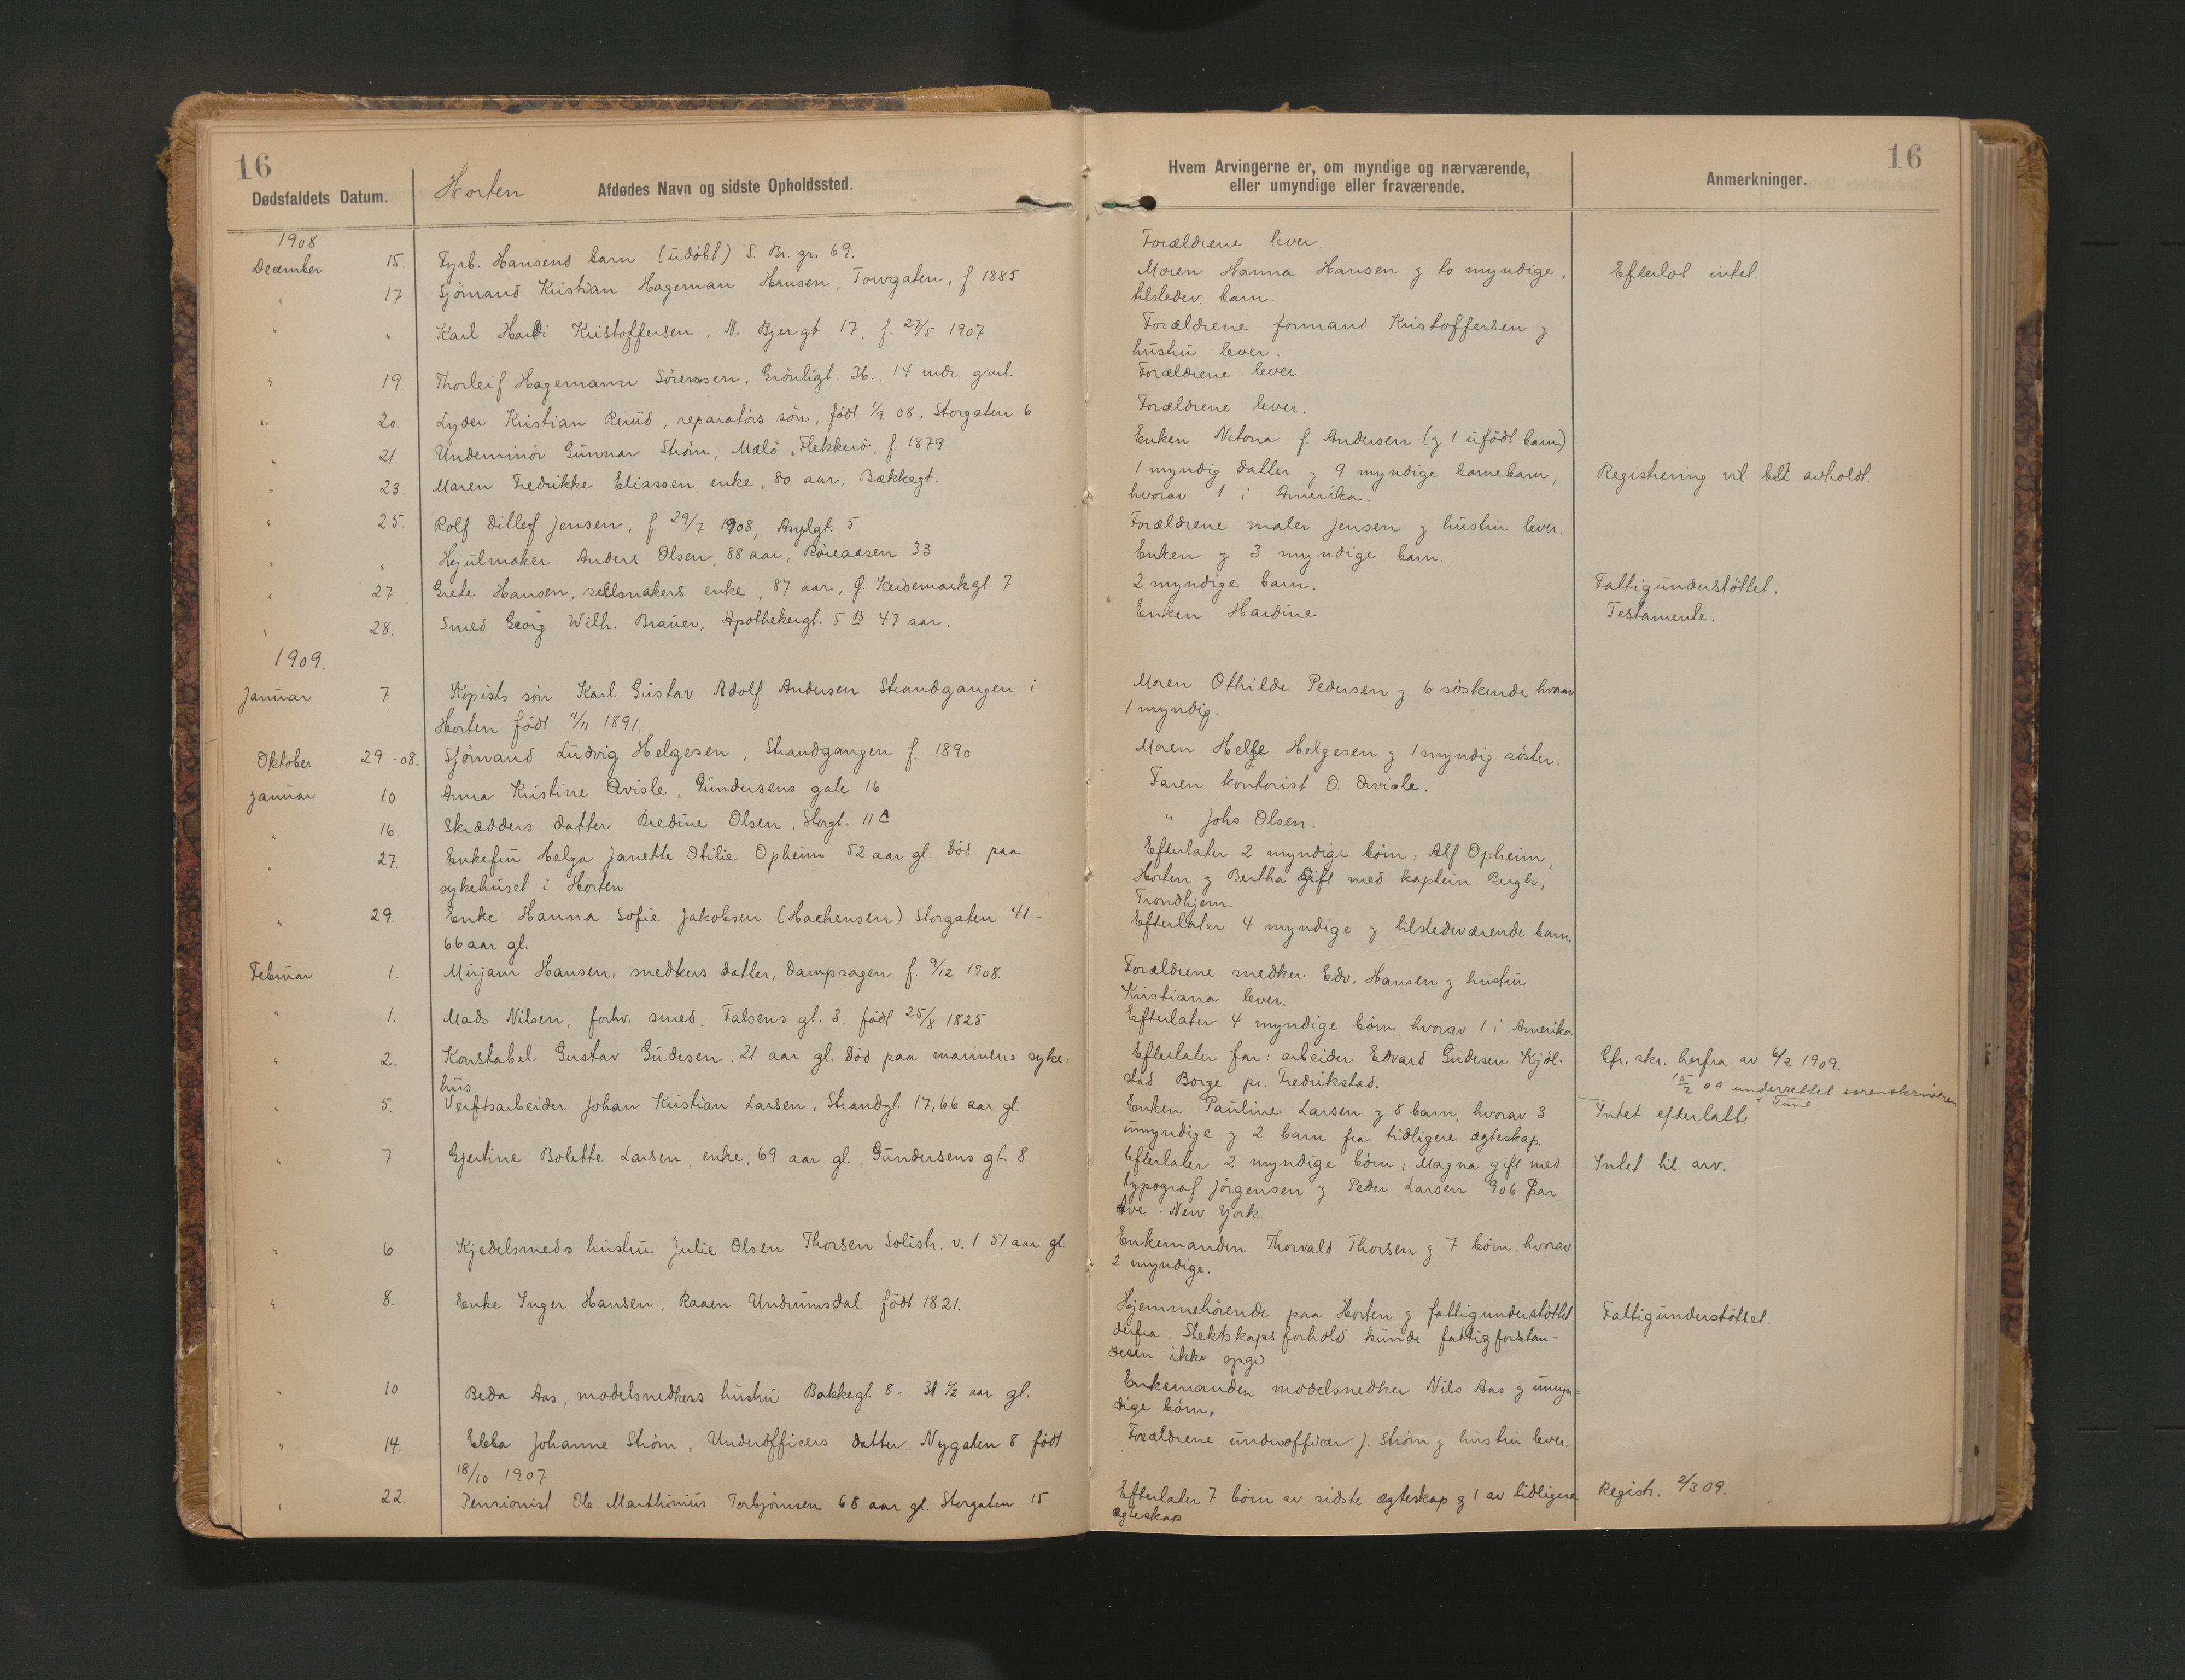 16
Dødsfaldets Datum.
Horten
Afdødes Navn og sidste Opholdssted.
1908
December 15. Fyrb. Hansens barn (udøbt) S. Br. gr. 69.
" 17 Sjömand Kristian Hageman Hansen, Towgaten, f. 1885
" " Karl Hardi Kristoffersen, N. Bjergt 17. f. 27/5 1907
" 19. Thorleif Hagemann Sörensen, Grönligt. 36., 14 mdr. gml.
" 20. Lyder Kristian Ruud, reparatörs sön, födt 1/9 08, Storgaten 6
" 21. Underminör Gunnar Ström, Malö, Flekkerö, f. 1879
" 23. Maren Fredrikke Eliassen, enke, 80 aar, Bakkegt.
" 25. Rolf Ditlef Jensen, f 29/7 1908, Asylgt. 5
" " Hjulmaker Anders Olsen, 88 aar, Röreaasen 33
" 27 Grete Hansen, seilmakers enke, 87 aar, Q. Keisemarkgt. 7
" 28. Smed Georg Wilh. Brauer, Apothekergt. 5 B 47 aar.
1909.
Januar 7 Kopists sön Karl Gustav Adolf Andersen Strandgangen i
Horten födt 11/11 1891.
Oktober 29 -08. Sjömand Ludvig Helgesen, Strandgangen f. 1890
Januar 10 Anna Kristine Qvisle, Gundersens gate 16
" 16. Skrædders datter Bredine Olsen, Storgt. 11 A
" 27. Enkefru Helga Janette Otilie Opheim 52 aar gl. Död paa
sykehuset i Horten
" 29. Enke Hanna Sofie Jakobsen (Hachensen) Storgaten 41 -
66 aar gl.
Februar 1. Mirjam Hansen, snedkers datter, Dampsagen f. 9/12 1908.
" 1. Mads Nilsen, forhv. smed. Falsens gt. 3. födt 25/8 1825
" 2. Konstabel Gustav Gudesen, 21 aar gl. Död paa marinens syke-
hus.
" 5. Verftsarbeider Johan Kristian Larsen, Strandgt. 17, 66 aar gl.
" 7 Gjertine Bolette Larsen, enke, 69 aar gl., Gundersens gt. 8
" 6 Kjedelsmeds hustru Julie Olsen Thorsen Solistr. v. 1 51 aar gl.
" 8. Enke Inger Hansen, Raaen Undrumsdal födt 1821.
" 10 Beda Aas, modelsnedkers hustru Bakkegt. 8 - 31 1/2 aar gl.
" 14. Ebba Johanne Ström, Underofficers datter Nygaten 8 födt
18/10 1907
" 22. Pensionist Ole Marthinius Torbjörnsen 68 aar gl. Storgaten 15
16
Hvem Arvingerne er, om myndige og nærværende,
eller umyndige eller fraværende.
Anmerkninger.
Forældrene lever.
Moren Hanna Hansen g to myndige, Efterlot intet.
tilstedev. barn.
Forældrene formand Kristoffersen g
hustru lever.
Forældrene lever.
Forældrene lever.
Enken f. Andersen (g 1 ufödt barn)
1 myndig datter g 9 myndige barnebarn, Registrering vil bli avholdt
hvorav 1 i Amerika.
Forældrene maler Jensen g hustru lever.
Enken g 3 myndige barn.
2 myndige barn. Fattigunderstöttet.
Enken Hardine Testamente.
Moren Othilde Pedersen g 6 söskende hvorav
1 myndig.
Moren Helge Helgesen g 1 myndig söster.
Faren kontorist O. Qvisle.
" Johs Olsen.
Efterlater 2 myndige börn: Alf Opheim,
Horten g Bertha gift med kaptein Bergh,
Trondhjem.
Efterlater 4 myndige g tilstedeværende barn.
Forældrene snedker Edv. Hansen g hustru
Kristiana lever.
Efterlater 4 myndige börn, hvorav 1 i Amerika
Efterlater far: arbeider Edvard Gudesen Kjöl- Cfr. skr. herfra av 6/2 1909.
stad Borge pr. Fredrikstad. 15/2 09 underrettet sorenskriveren
i Tune.
Enken Pauline Larsen g 8 barn, hvorav 3 Intet efterlatt
umyndige g 2 barn fra tidligere ægteskap.
Efterlater 2 myndige börn: Magna gift med Intet til arv.
typograf Jörgensen g Peder Larsen 906 Par
Ave - New York.
Enkemanden Thorvald Thorsen g 7 börn, hvorav
2 myndige.
Hjemmehörende paa Horten g fattigunderstöttet Fattigunderstöttet.
derfra. Slektskapsforhold kunde fattigforstan-
deren ikke opgi
Enkemanden modelsnedker Nils Aas g umyn=
dige börn.
Forældrene underofficer J. Ström g hustru lever.
Efterlater 7 börn av sidste ægteskap g 1 av tidligere Registr. 2/3 09.
ægteskap